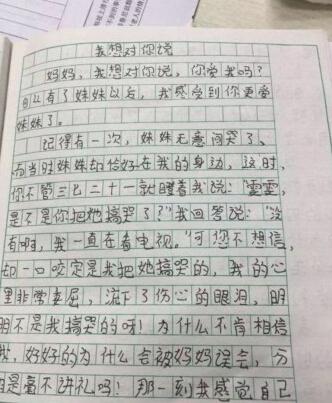 我想对你说
妈妈，我想对你说，你爱我吗？
自从有了妹妹以后，我感受到你更爱
妹妹了。
记得有一次，妹妹无意间哭了，
而当时妹妹却恰好在我的身边，这时，
你不管三七二十一就瞪着我说：“雪雪，
是不是你把她搞哭了？”我回答说：“没
有啊，我一直在看电视。”可您不想信，
却一口咬定是我把她搞哭的，我的心
里非常委屈，流下了伤心的眼泪，明
明不是我搞哭的呀！为什么不肯相信
我，好好的为什么会被妈妈误会，分
明是毫不讲礼吗！那一刻我感觉自己